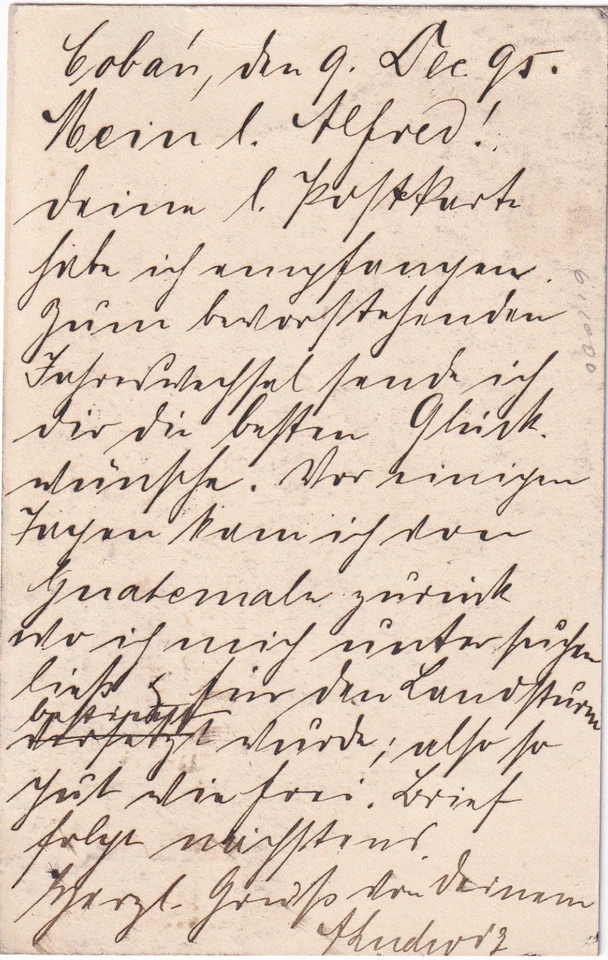 Cobán, den 9. Dec 95.
Mein l. Alfred!
Deine l. Postkarte
habe ich empfangen.
Zum bevorstehenden
Jahreswechsel sende ich
dir die besten Glück-
wünsche. Vor einigen
Tagen kam ich von
Guatemala zurück
wo ich mich untersuchen
ließ & für den Landsturm
bestimmt
versetzt wurde; also so
gut wie frei. Brief
folgt nächstens.
Herzl. Gruß von Deinem
Ludwig